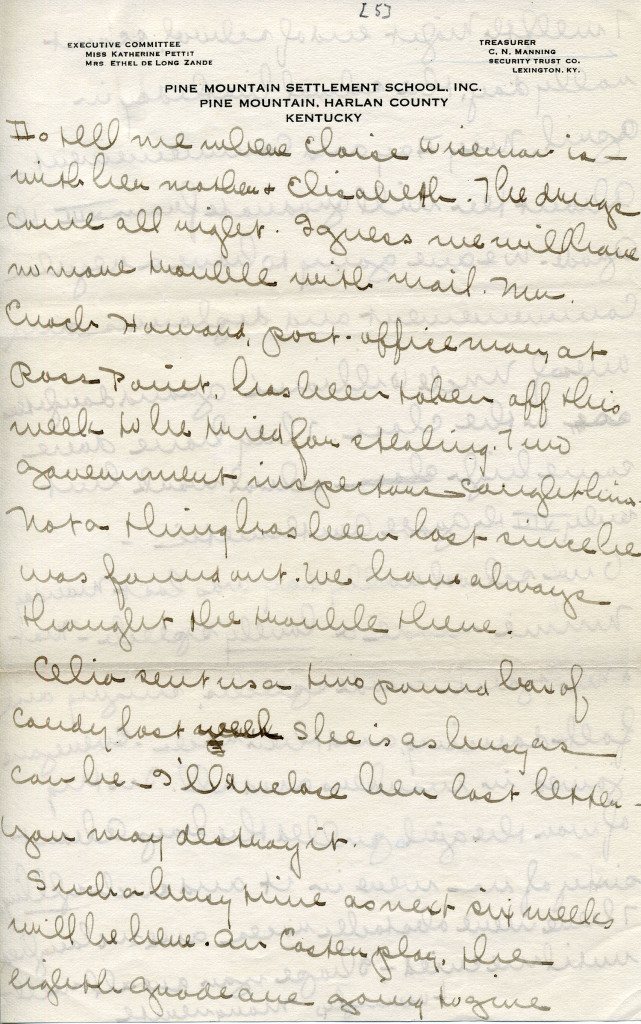 [5]
EXECUTIVE COMMITTEE
MISS KATHERINE PETTIT
MRS ETHEL DE LONG ZANDE
TREASURER
C. N. MANNING
SECURITY TRUST CO.
LEXINGTON, KY.
PINE MOUNTAIN SETTLEMENT SCHOOL, INC.
PINE MOUNTAIN, HARLAN COUNTY
KENTUCKY
to tell me where Cloise Wiseman is –
with her mother & Elisabeth. The drugs
come all right. I guess we will have
no more trouble with mail. Mr.
Enoch Howard, post-office man, at
Ross Point, has been taken off this
week to be tried for stealing. Two
government inspectors caught him.
Not a thing has been lost since he
was found out. We have always
thought the trouble there.
Celia sent us a two pound box of
candy last week She is as busy as
can be – I'll enclose her last letter –
you may destroy it.
Such a busy time as next six weeks
will be here. An Easter play, the
eighth grade are going to give